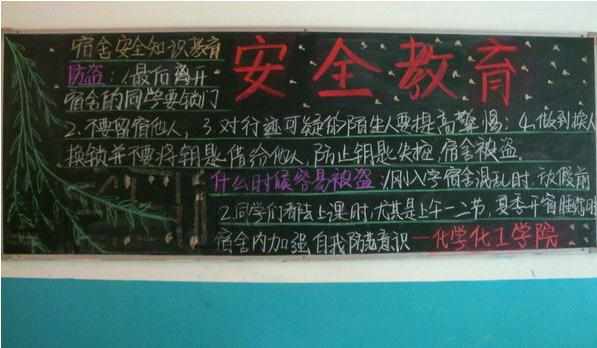 安全教育
宿舍安全知识教育
防盗:1最后离开
宿舍的同学要锁门
2.不要留宿他人,3对行迹可疑的陌生人要提高警惕:4.做到换人
换锁并不要将钥匙借给他人,防止钥匙失控,宿舍被盗.
什么时候容易被盗:1刚入学宿舍混乱时,放假前
2同学们都去上课时,尤其是上午一二节,夏季开窗睡觉时
宿舍内加强自我防范意识—化学化工学院